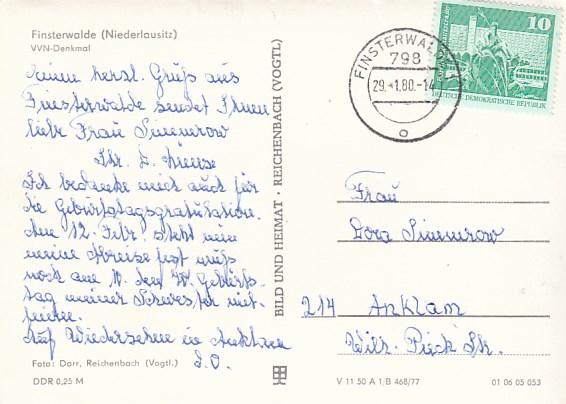 Finsterwalde (Niederlausitz)
VVN-Denkmal
Einen herzl. Gruß aus
Finsterwalde sendet Ihnen
liebe Frau Simmrow
Ihr
Ich bedanke mich auch für
die Geburtstagsgratulation.
Am 12. Febr. steht nun
meine Abreise fest muß
noch am 10. den 70. Geburts-
tag meiner Schwester mit-
feiern.
Auf Wiedersehen in Anklam
Foto: Darr, Reichenbach (Vogtl.)
DDR 0,25 M
BILD UND HEIMAT · REICHENBACH (VOGTL)
FINSTERWALDE 1
798
29.-1.80.-14
10
DEUTSCHE DEMOKRATISCHE REPUBLIK
Frau
Dora Simmrow
214 Anklam
Wilh. Pieck Str.
V 11 50 A 1/B 468/77
01 06 05 053